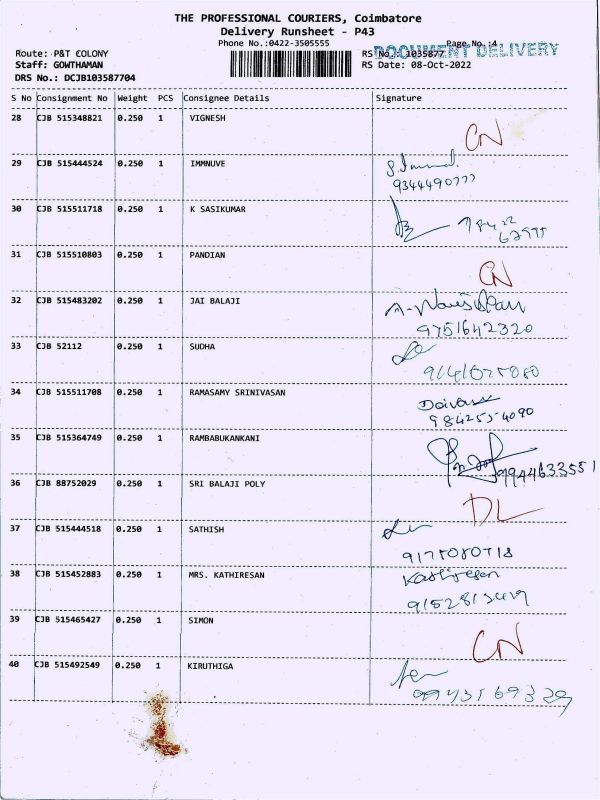 THE PROFESSIONAL COURIERS, Coimbatore
Delivery Runsheet - P43
Phone No.:0422-3505555
Page No.:4
DOCUMENT DELIVERY
Route: P&T COLONY
RS No.: 1035877
Staff: GOWTHAMAN
RS Date: 08-Oct-2022
DRS No.: DCJB103587704
S No Consignment No Weight PCS Consignee Details Signature
28 CJB 515348821 0.250 1 VIGNESH
CN
29 CJB 515444524 0.250 1 IMMNUVE
9344490777
30 CJB 515511718 0.250 1 K SASIKUMAR
31 CJB 515510803 0.250 1 PANDIAN
CN
32 CJB 515483202 0.250 1 JAI BALAJI
9751642320
33 CJB 52112 0.250 1 SUDHA
34 CJB 515511708 0.250 1 RAMASAMY SRINIVASAN
9842554090
35 CJB 515364749 0.250 1 RAMBABUKANKANI
9944633551
36 CJB 88752029 0.250 1 SRI BALAJI POLY
DL
37 CJB 515444518 0.250 1 SATHISH
38 CJB 515452883 0.250 1 MRS. KATHIRESAN
Kathiresan
39 CJB 515465427 0.250 1 SIMON
CN
40 CJB 515492549 0.250 1 KIRUTHIGA